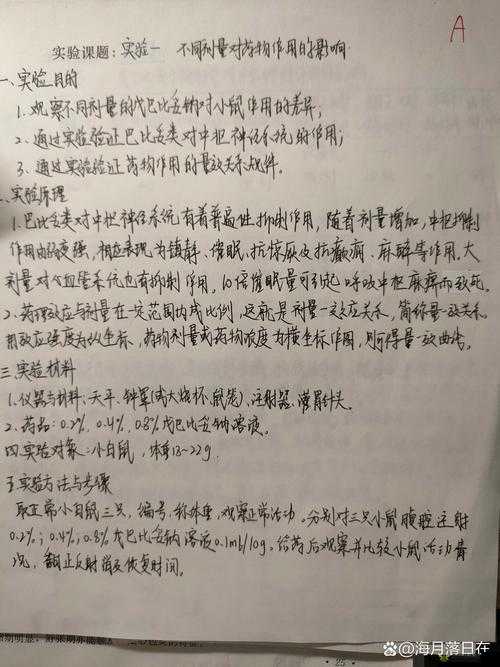 A
实验课题：实验一 不同剂量对药物作用的影响
一、实验目的
1. 观察不同剂量的戊巴比妥钠对小鼠作用的差异；
2. 通过实验验证巴比妥类对中枢神经系统的作用；
3. 通过实验验证药物作用的量效关系规律。
二、实验原理
1. 巴比妥类对中枢神经系统有着普遍性抑制作用，随着剂量增加，中枢抑制
作用由弱变强，相应表现为镇静、催眠、抗惊厥及抗癫痫、麻醉等作用。大
剂量对心血管系统也有抑制作用，10倍催眠量可引起呼吸中枢麻痹而致死。
2. 药理效应与剂量在一定范围内成比例，这就是剂量一效应关系，简称量一效关系。
用效应强度为纵坐标，药物剂量或药物浓度为横坐标作用，则可得量一效曲线。
三 实验材料
1. 仪器与材料：天平、钟罩(或大烧杯、鼠笼)、注射器、灌胃针头。
2. 药品：0.2%、0.4%、0.8%戊巴比妥钠溶液。
四 实验对象：小白鼠，体重18~22g.
五 实验方法与步骤
取正常小白鼠三只，编号，称体重，观察正常活动。分别对三只小鼠腹腔注射
0.2%；0.4%；0.8%戊巴比妥钠溶液0.1ml/10g，给药后观察并比较小鼠活动情
况，翻正反射消失恢复时间。
期明显，舒张期亦能
95
海月落日在